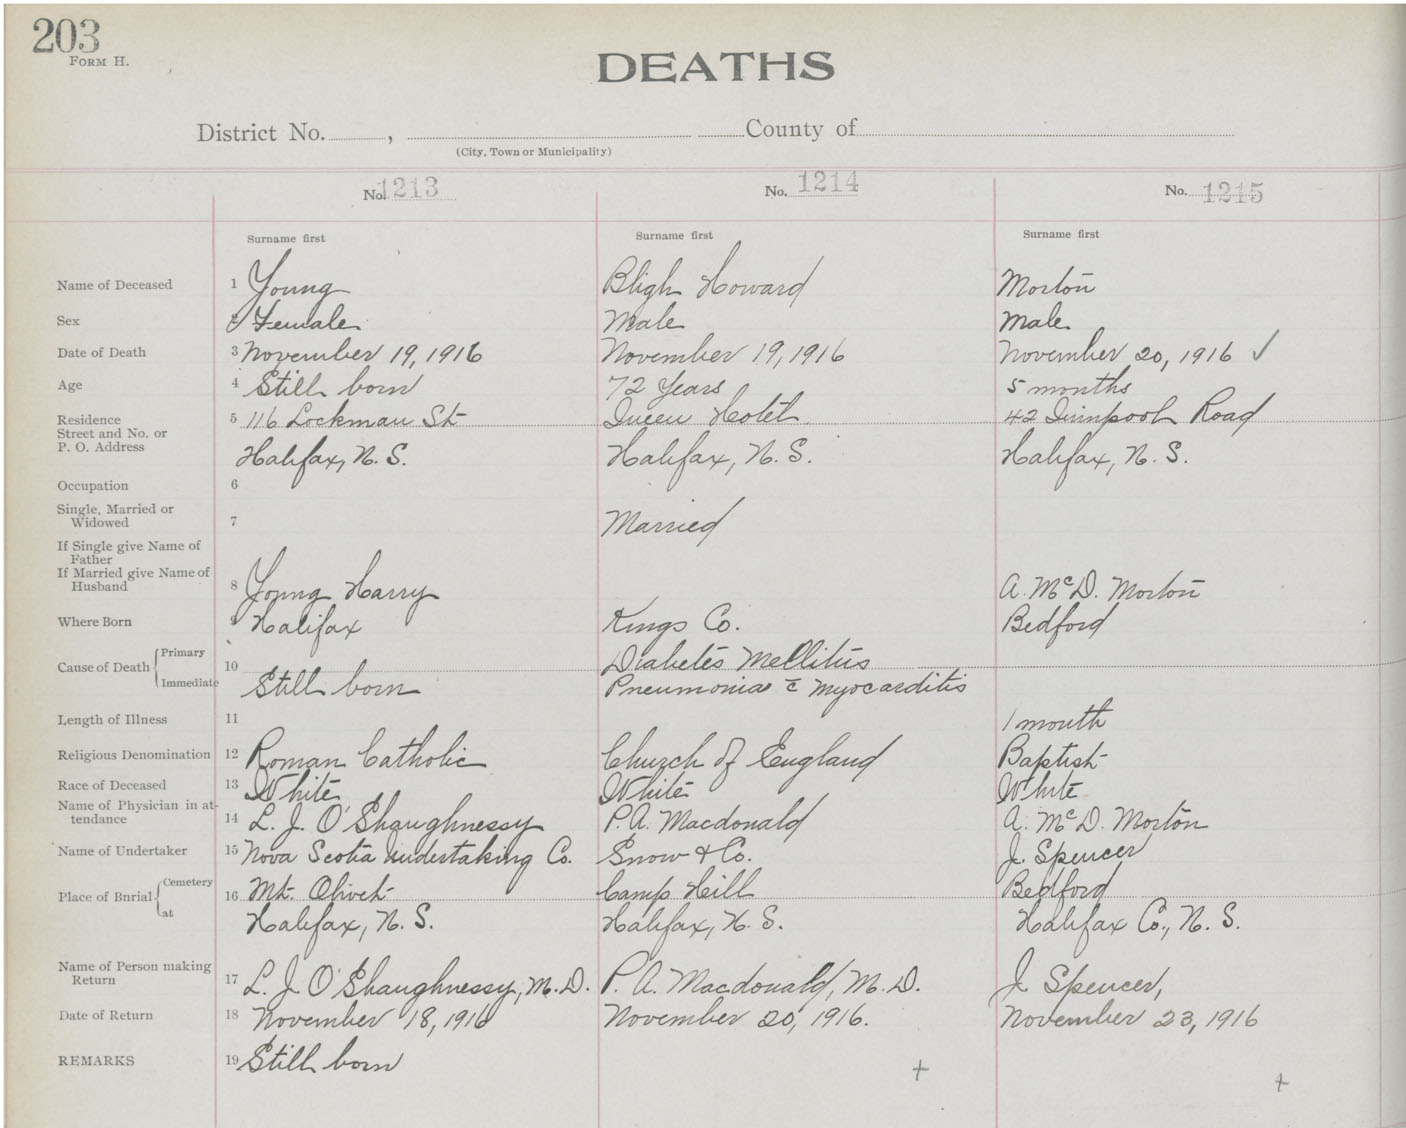 203
FORM H.
DEATHS
District No. , County of
(City, Town or Municipality)
No. 1213 No. 1214 No. 1215
Surname first Surname first Surname first
Name of Deceased 1 Young Bligh Howard Morton
Sex 2 Female Male Male
Date of Death 3 November 19, 1916 November 19, 1916 November 20, 1916 ✓
Age 4 Still born 72 Years 5 months
Residence 5 116 Lockman St Queen Hotel 42 Road
Street and No. or
P. O. Address Halifax, N. S. Halifax, N. S. Halifax, N. S.
Occupation 6
Single, Married or
Widowed 7 Married
If Single give Name of
Father
If Married give Name of
Husband 8 Young Harry A. McD. Morton
Where Born 9 Halifax Kings Co. Bedford
Cause of Death Primary 10 Diabetes Mellitus
Immediate Still born Pneumonia c̄ Myocarditis
Length of Illness 11 1 month
Religious Denomination 12 Roman Catholic Church of England Baptist
Race of Deceased 13 White White White
Name of Physician in at-
tendance 14 L. J. O'Shaughnessy P. A. Macdonald A. McD. Morton
Name of Undertaker 15 Nova Scotia Undertaking Co. Snow & Co. J. Spencer
Place of Burial Cemetery 16 Mt. Olivet Camp Hill Bedford
at Halifax, N. S. Halifax, N. S. Halifax Co., N. S.
Name of Person making
Return 17 L. J. O'Shaughnessy, M. D. P. A. Macdonald, M. D. J. Spencer,
Date of Return 18 November 18, 1916 November 20, 1916. November 23, 1916
REMARKS 19 Still born
+ +